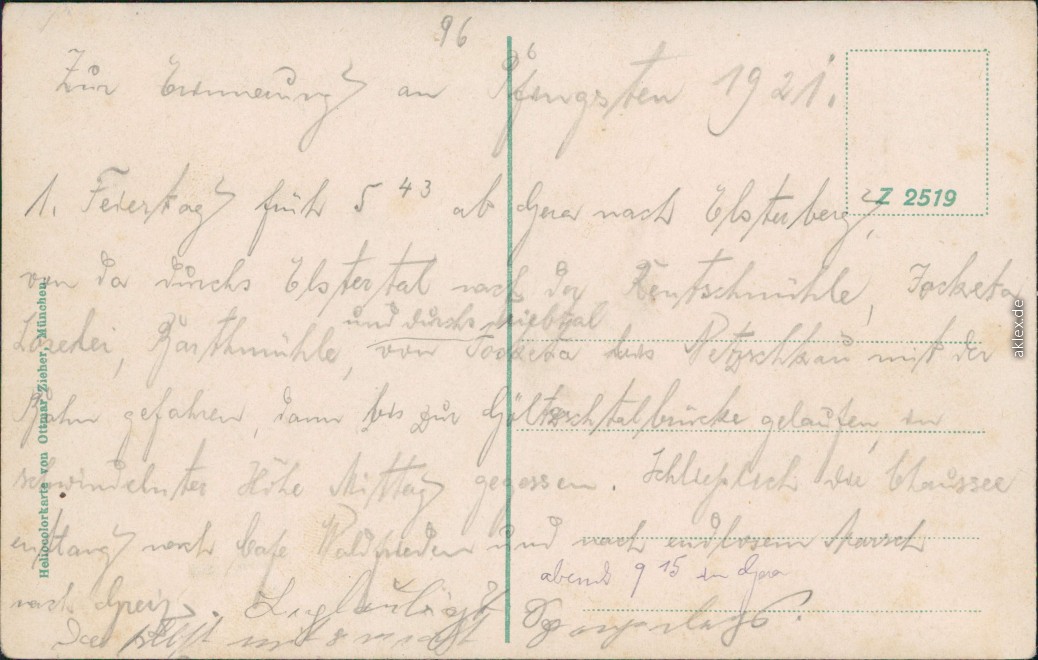 96
Zur Erinnerung an Pfingsten 1921.
1. Feiertag früh 5 43 ab Gera nach Elsterberg,
von da durchs Elstertal nach der Rentschmühle, Jocketa
und durchs Triebtal
Barthmühle, von Jocketa bis Netzschkau mit der
Bahn gefahren, dann bis zur Göltzschtalbrücke gelaufen, in
schwindelnter Höhe Mittag gegessen. Schließlich die Chaussee
entlang nach Cafe Waldfrieden und nach endlosem Marsch
nach Greiz.
abends 9 15 in Gera
Z 2519
Heliocolorkarte von Ottmar Zieher, München
aklex.de